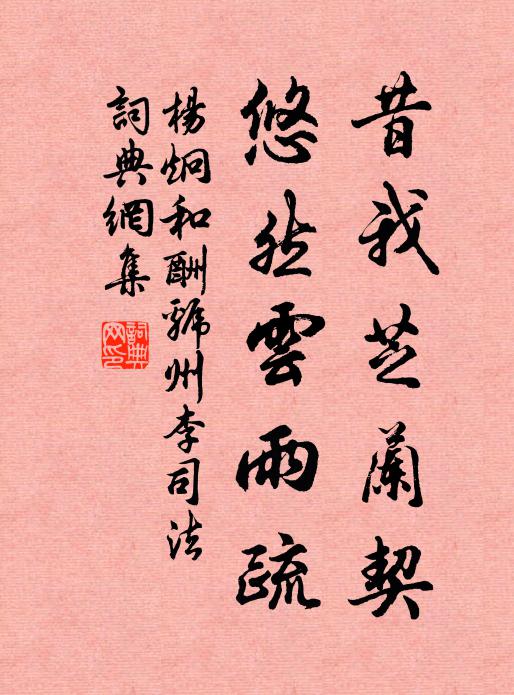 昔我芝蘭契
悠然雲雨疏
楊炯和酬虢州李司法
詞典網集
詞典網印